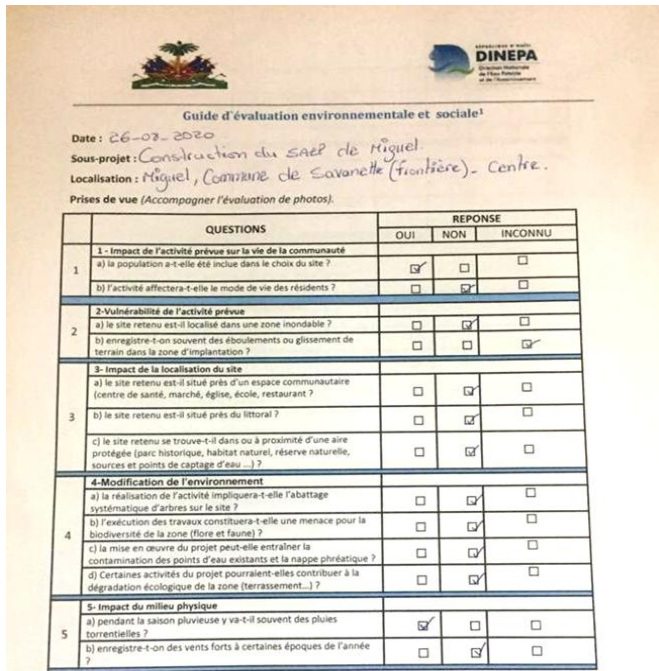 RÉPUBLIQUE D'HAÏTI
DINEPA
Direction Nationale
de l'Eau Potable
et de l'Assainissement
Guide d'évaluation environnementale et sociale¹
Date : 26-08-2020
Sous-projet : Construction du SAEP de Miguel.
Localisation : Miguel, Commune de Savanette (frontière) - Centre.
Prises de vue (Accompagner l'évaluation de photos).
QUESTIONS
REPONSE
OUI NON INCONNU
1
1 - Impact de l'activité prévue sur la vie de la communauté
a) la population a-t-elle été inclue dans le choix du site ?
b) l'activité affectera-t-elle le mode de vie des résidents ?
2
2-Vulnérabilité de l'activité prévue
a) le site retenu est-il localisé dans une zone inondable ?
b) enregistre-t-on souvent des éboulements ou glissement de
terrain dans la zone d'implantation ?
3
3- Impact de la localisation du site
a) le site retenu est-il situé près d'un espace communautaire
(centre de santé, marché, église, école, restaurant ?
b) le site retenu est-il situé près du littoral ?
c) le site retenu se trouve-t-il dans ou à proximité d'une aire
protégée (parc historique, habitat naturel, réserve naturelle,
sources et points de captage d'eau ...) ?
4
4-Modification de l'environnement
a) la réalisation de l'activité impliquera-t-elle l'abattage
systématique d'arbres sur le site ?
b) l'exécution des travaux constituera-t-elle une menace pour la
biodiversité de la zone (flore et faune) ?
c) la mise en œuvre du projet peut-elle entraîner la
contamination des points d'eau existants et la nappe phréatique ?
d) Certaines activités du projet pourraient-elles contribuer à la
dégradation écologique de la zone (terrassement...) ?
5
5- Impact du milieu physique
a) pendant la saison pluvieuse y va-t-il souvent des pluies
torrentielles ?
b) enregistre-t-on des vents forts à certaines époques de l'année
?